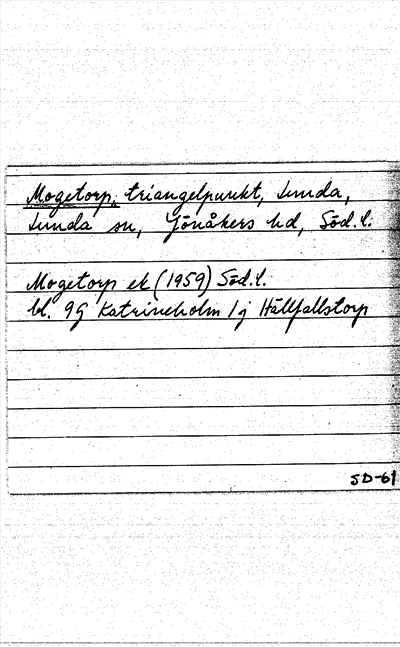 Mogetorp, triangelpunkt, Lunda,
Lunda sn, Jönåkers hd, Söd.l.
Mogetorp ek (1959) Söd.l.
bl. 9G Katrineholm 1j Hällfallstorp
SD-61